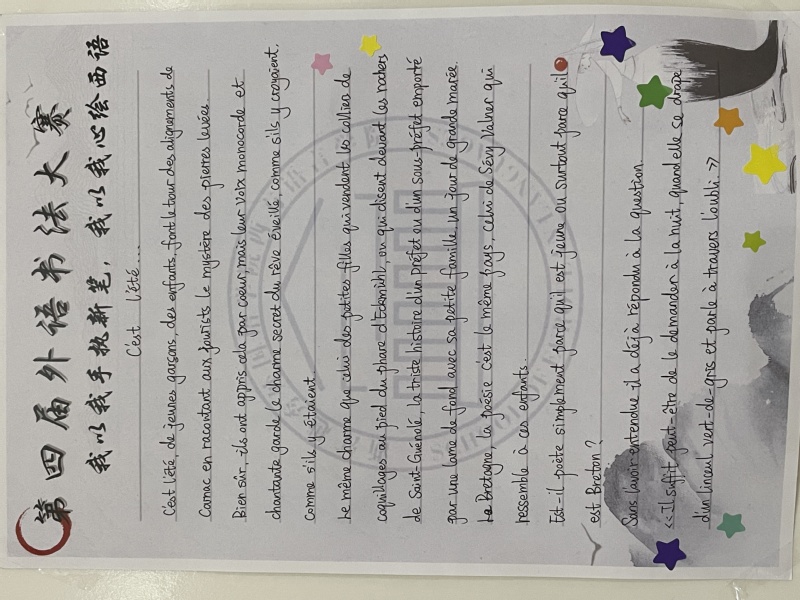 第四届外语书法大赛
我以我手执新笔，我以我心绘西语
C'est l'été...
C'est l'été, de jeunes garsons, des enfants, font le tour des alignements de
Carnac en racontant aux tourists le mystère des pierres levées.
Bien sûr, ils ont appris cela par coeur, mais leur voix monocorde et
chantante garde le charme secret du rêve éveillé, comme s'ils y croyaient,
comme s'ils y étaient.
Le même charme que celui des petites filles qui vendent les colliers de
coquillages au pied du phare d'Eckmühl, ou qui disent devant les rochers
de Saint-Guénolé, la triste histoire d'un préfet ou d'un sous-préfet emporté
par une lame de fond avec sa petite famille, un jour de grande marée.
La Bretagne, la poésie c'est le même pays, celui de Sévy Valner qui
ressemble à ces enfants.
Est-il poète simplement parce qu'il est jeune ou surtout parce qu'il
est Breton?
Sans l'avoir entendue il a déjà répondu à la question.
<<Il suffit peut-être de le demander à la nuit, quand elle se drape
d'un linceul vert-de-gris et parle à travers l'oubli. >>